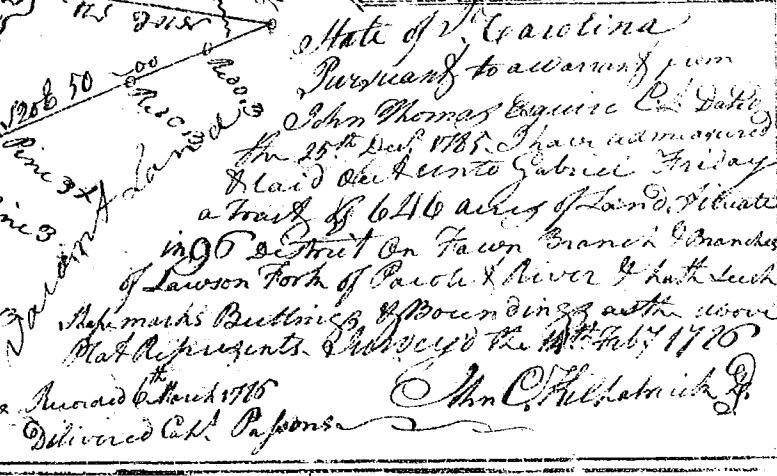 S20E 50 00
Red O 3
Red O 3
Pine 3 X
Pine 3
Vacant Land
State of So Carolina
Pursuant to a warrant from
John Thomas Esquire C.L Dated
the 25th Decr 1785. I have admeasured
& laid Out unto Gabriel Friday
a Tract of 646 acres of Land, Situate
in 96 District On Fawn Branch & Branches
of Lawson Fork of Pacolet River & hath Such
Shape marks Buttings & Boundings as the above
Plat Represents Surveyd the 14th Feby 1786
Recorded 6th March 1786
John C. Kilpatrick D.S.
Delivered Capt. Parsons